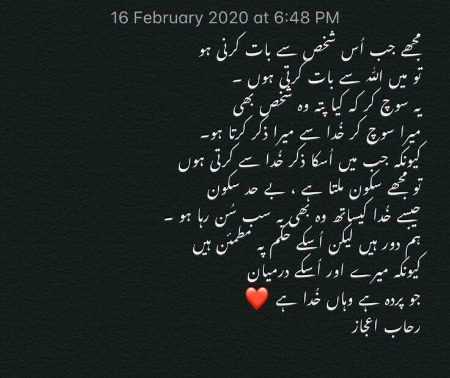 16 February 2020 at 6:48 PM
مجھے جب اُس شخص سے بات کرنی ہو
تو میں اللہ سے بات کرتی ہوں ۔
یہ سوچ کر کہ کیا پتہ وہ شخص بھی
میرا سوچ کر خُدا سے میرا ذکر کرتا ہو۔
کیونکہ جب میں اُسکا ذکر خُدا سے کرتی ہوں
تو مجھے سکون ملتا ہے ، بے حد سکون
جیسے خُدا کیساتھ وہ بھی یہ سب سُن رہا ہو ۔
ہم دور ہیں لیکن اُسکے حکم پہ مطمئن ہیں
کیونکہ میرے اور اُسکے درمیان
جو پردہ ہے وہاں خُدا ہے ❤️
رحاب اعجاز